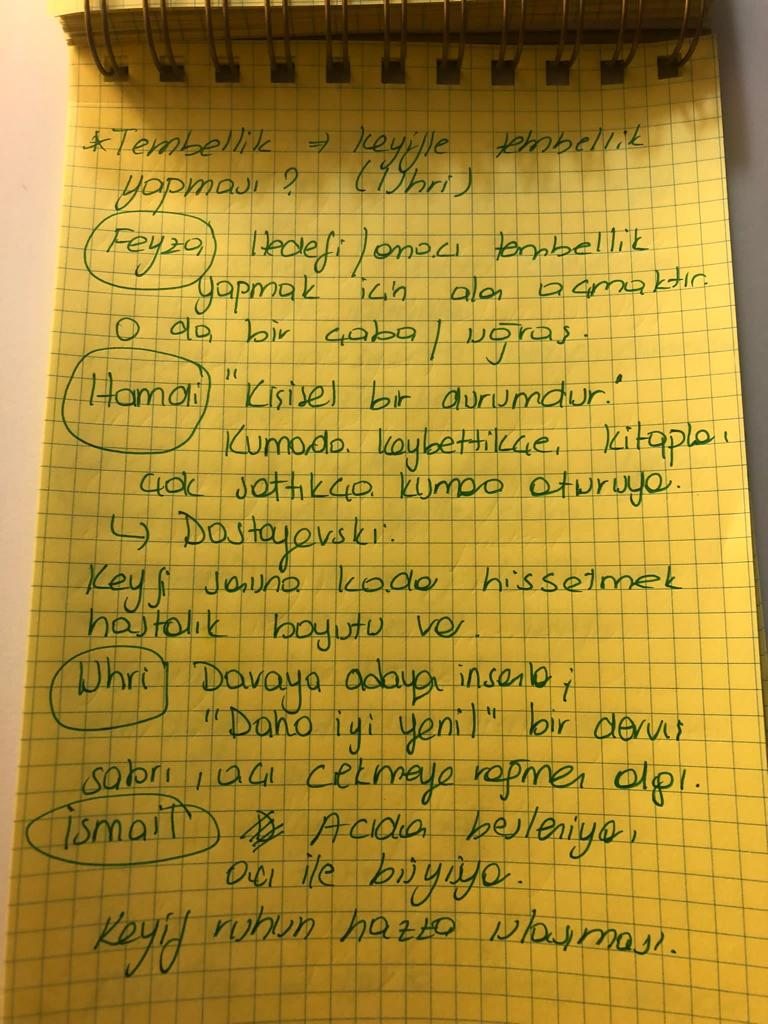 *Tembellik → Keyifle tembellik
yapması? (Uhri)
Feyza Hedefi/amacı tembellik
yapmak için alan açmaktır.
O da bir çaba/uğraş.
Hamdi "Kişisel bir durumdur."
Kumarda kaybettikçe, kitapları
çok sattıkça kumar oturuyor.
↳ Dostoyevski.
Keyfi sonuna kadar hissetmek
hastalık boyutu var.
Uhri Davaya adayan insanlar;
"Daha iyi yenil" bir derviş
sabrı, acı çekmeye rağmen algı.
İsmail Acıdan besleniyor,
acı ile büyüyor.
Keyif ruhun hazza ulaşması.